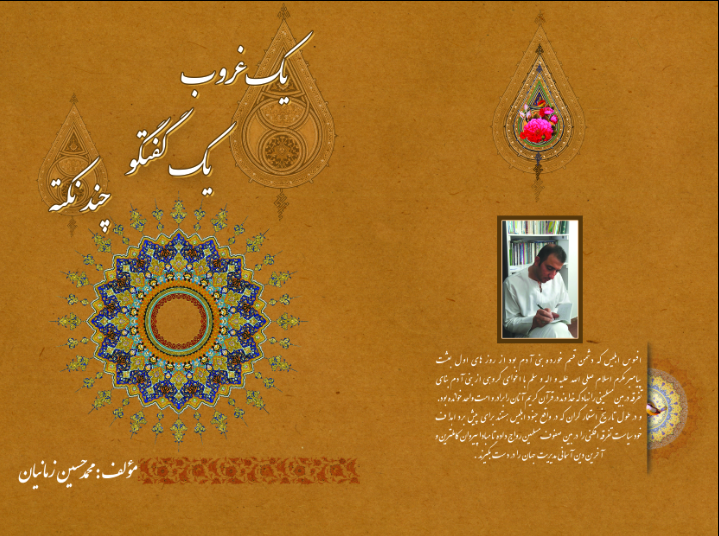 یک غروب
یک گفتگو
چند نکته
مؤلف: محمدحسین زمانیان
افسوس ابلیس که دشمن قسم خورده بنی آدم بود از روز های اول بعثت
پیامبر مکرم اسلام صلی الله علیه و اله و سلم با اغوای گروهی از بنی آدم بنای
تفرقه در بین مسلمین را نهاد که خداوند در قرآن کریم آنان را برادر و امت واحد خوانده بود.
و در طول تاریخ استعمار گران که در واقع جنود ابلیس هستند برای پیش برد اهداف
خود سیاست تفرقه افکنی را در بین صفوف مسلمین رواج داده تا مبادا پیروان کاملترین و
آخرین دین آسمانی مدیریت جهان را در دست بگیرند.